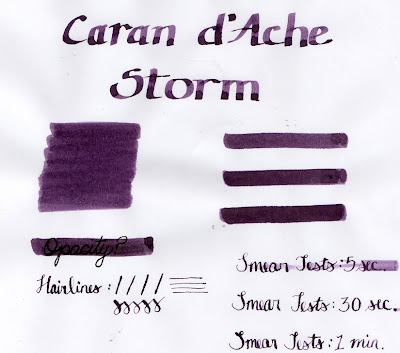 Caran d'Ache
Storm
Opacity?
Hairlines:
Smear Tests: 5 sec.
Smear Tests: 30 sec.
Smear Tests: 1 min.